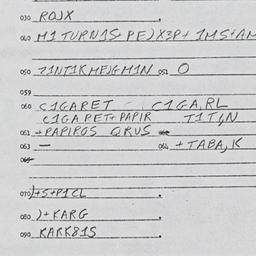 030 ROJX
040 M1 TURN1S+ PE)X3P+ 1MS+AM
050 Z1NT1KMEJGM1N 051 O
059
060 C1GARET C1GA,RL
C1GA PET+ PAPIR T1T1N
061 +PAPIROS QRUS
063 — 064 +TABA,K
070 )+S+P1CL
080 )+KARG
090 KARK81S